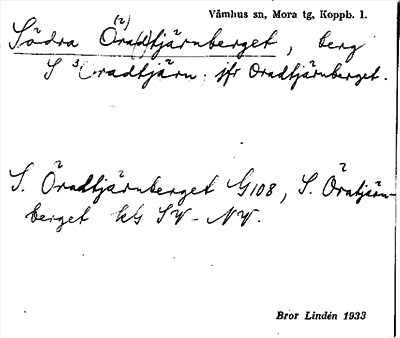 Våmhus sn, Mora tg, Koppb. l.
Södra Öra(d)tjärnberget, berg
S Oradtjärn; jfr Oradtjärnberget.
S. Öradtjärnberget G108, S. Öratjärn-
berget kG SV-NV.
Bror Lindén 1933